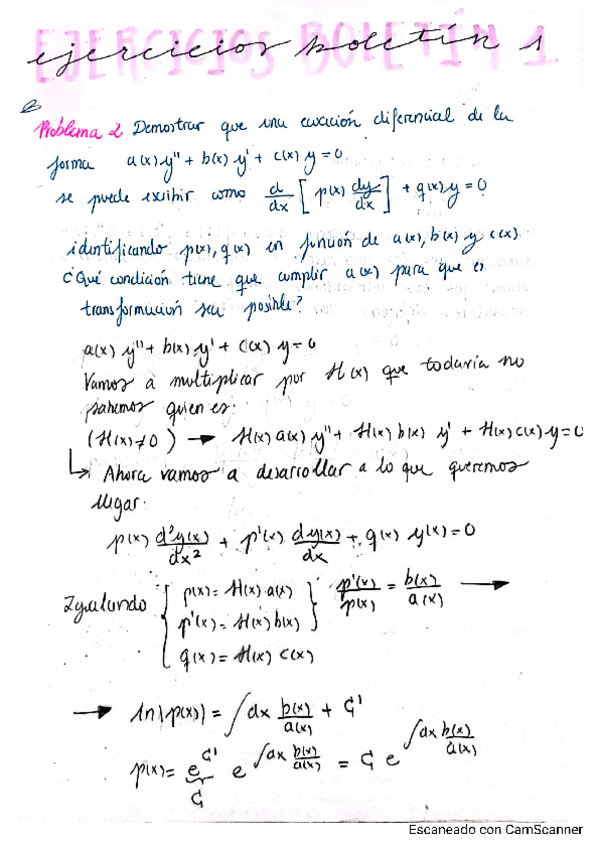 EJERCICIOS BOLETÍN 1
ejercicios boletín 1
Problema 2 Demostrar que una ecuación diferencial de la
forma a(x) y'' + b(x) y' + c(x) y = 0
se puede escribir como d/dx [p(x) dy/dx] + q(x) y = 0
identificando p(x), q(x) en función de a(x), b(x) y c(x)
¿Qué condición tiene que cumplir a(x) para que es
transformación sea posible?
a(x) y'' + b(x) y' + c(x) y = 0
Vamos a multiplicar por H(x) que todavía no
sabemos quien es:
(H(x) ≠ 0) → H(x) a(x) y'' + H(x) b(x) y' + H(x) c(x) y = 0
↳ Ahora vamos a desarrollar a lo que queremos
llegar.
p(x) d²y(x)/dx² + p'(x) dy(x)/dx + q(x) y(x) = 0
Igualando { p(x) = H(x)·a(x)
p'(x) = H(x) b(x) } p'(x)/p(x) = b(x)/a(x) →
q(x) = H(x) c(x)
→ ln|p(x)| = ∫dx b(x)/a(x) + C₁'
p(x) = e^{C₁'} e^{∫dx b(x)/a(x)} = C₁ e^{∫dx b(x)/a(x)}
C₁
Escaneado con CamScanner